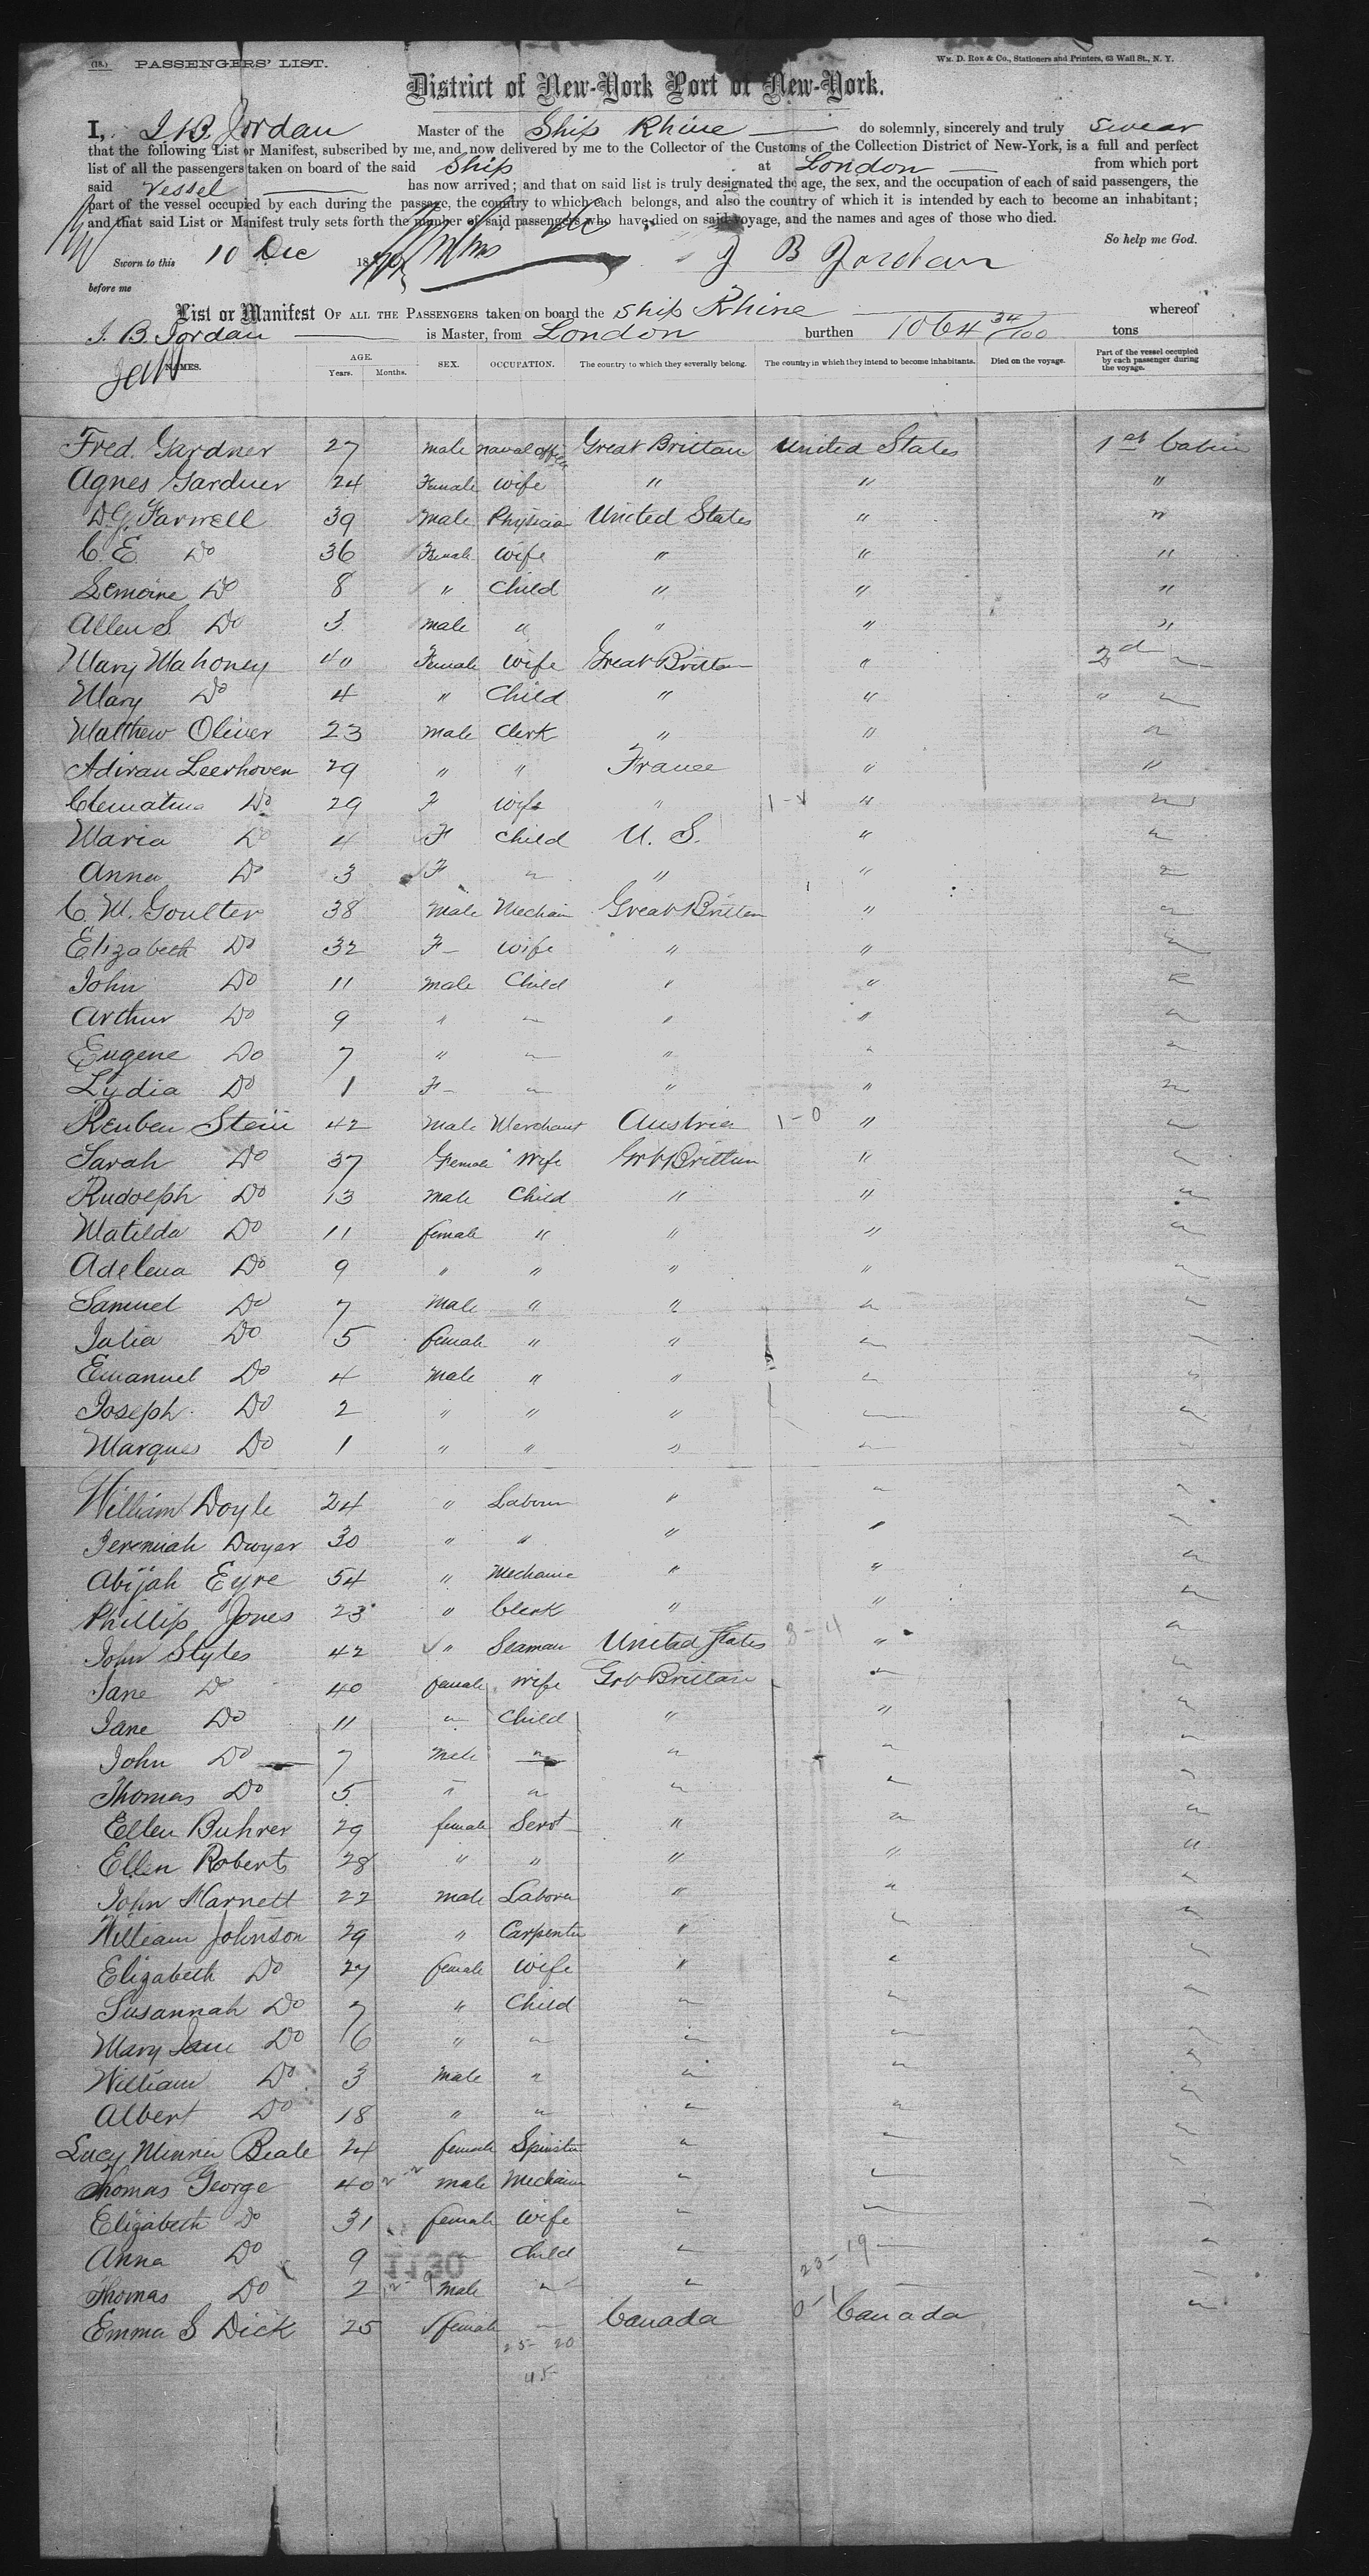 (18.) PASSENGERS' LIST. Wm. D. Roe & Co., Stationers and Printers, 63 Wall St., N. Y.
District of New-York Port of New-York.
I, J B Jordan Master of the Ship Rhine do solemnly, sincerely and truly swear
that the following List or Manifest, subscribed by me, and now delivered by me to the Collector of the Customs of the Collection District of New-York, is a full and perfect
list of all the passengers taken on board of the said Ship at London from which port
said Vessel has now arrived; and that on said list is truly designated the age, the sex, and the occupation of each of said passengers, the
part of the vessel occupied by each during the passage, the country to which each belongs, and also the country of which it is intended by each to become an inhabitant;
and that said List or Manifest truly sets forth the number of said passengers who have died on said voyage, and the names and ages of those who died.
So help me God.
Sworn to this 10 Dec 18 J B Jordan
before me
List or Manifest OF ALL THE PASSENGERS taken on board the Ship Rhine whereof
J. B. Jordan is Master, from London burthen 1064 34/100 tons
NAMES. AGE. Years. Months. SEX. OCCUPATION. The country to which they severally belong. The country in which they intend to become inhabitants. Died on the voyage. Part of the vessel occupied by each passenger during the voyage.
Fred. Gardner 27 male naval offier Great Brittan United States 1st Cabin
Agnes Gardner 24 Female Wife " " "
D.G. Farwell 39 male Physician United States " "
C. E. Do 36 Female Wife " " "
Lemoine Do 8 " Child " " "
Allen S. Do 3 male " " " "
Mary Mahoney 40 Female Wife Great Brittan " 2d "
Mary Do 4 " Child " " " "
Matthew Oliver 23 male Clerk " " "
Adiran Leerhoven 29 " " France " "
Clematina Do 29 F Wife " 1- " "
Maria Do 4 F Child U. S. " "
Anna Do 3 F " " " "
C. W. Goulter 38 Male Mechain Great Britten " "
Elizabeth Do 32 F Wife " " "
John Do 11 male Child " " "
Arthur Do 9 " " " " "
Eugene Do 7 " " " " "
Lydia Do 1 F " " " "
Reuben Stein 42 Male Merchant Austria 1-0 " "
Sarah Do 37 Female Wife Grt Brittan " "
Rudolph Do 13 male Child " " "
Matilda Do 11 female " " " "
Adelena Do 9 " " " " "
Samuel Do 7 Male " " " "
Julia Do 5 female " " " "
Emanuel Do 4 Male " " " "
Joseph Do 2 " " " " "
Marques Do 1 " " " " "
William Doyle 24 " Labour " " "
Jeremiah Dwyer 30 " " " " "
Abijah Eyre 54 " Mechanic " " "
Phillip Jones 23 " Clerk " " "
John Styles 42 " Seaman United States 3-4 " "
Jane Do 40 female Wife Grt Brittan " "
Jane Do 11 " Child " " "
John Do 7 Male " " " "
Thomas Do 5 " " " " "
Ellen Buhrer 29 female Servt " " "
Ellen Roberts 28 " " " " "
John Harnett 22 male Labour " " "
William Johnson 29 " Carpenter " " "
Elizabeth Do 27 female Wife " " "
Susannah Do 7 " Child " " "
Mary Jane Do 6 " " " " "
William Do 3 Male " " " "
Albert Do 18 " " " " "
Lucy Minnie Beale 24 female Spinster " " "
Thomas George 40 2-2 male Mechain " " "
Elizabeth Do 31 female Wife " " "
Anna Do 9 " Child " 23-19 " "
Thomas Do 2 12-9 male " " " "
Emma S Dick 25 female " Canada 0-1 Canada "
25-20
45